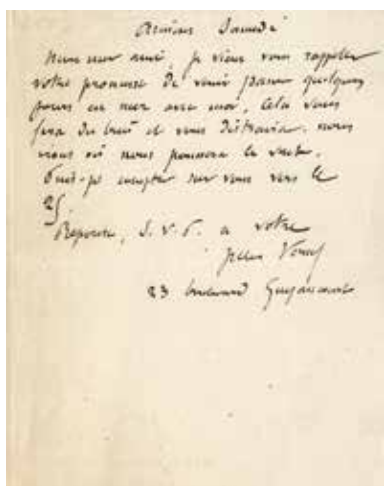 Amiens Samedi
Mon cher ami, je viens vous rappeler
votre promesse de venir passer quelques
jours en mer avec moi, cela vous
fera du bien et vous distraira. nous
irons où nous poussera le vent.
Puis-je compter sur vous vers le
25.
Réponse, S.V.P. à votre
Jules Verne
23 boulevard Guyencourt